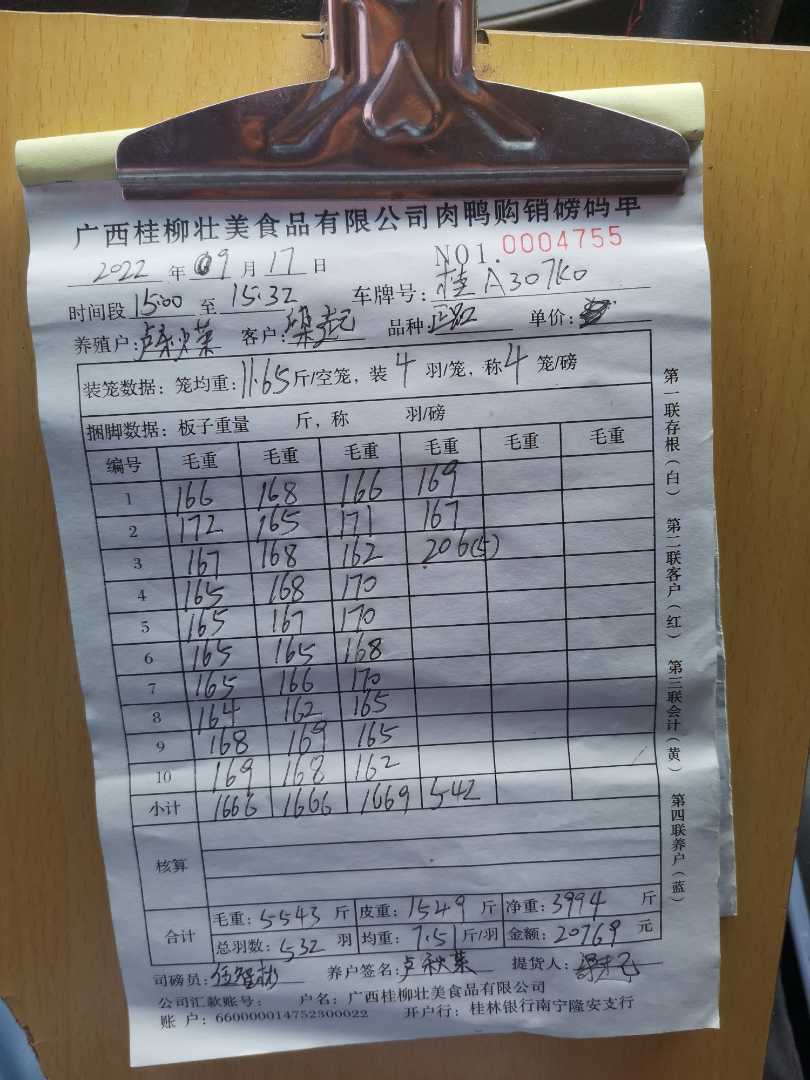 广西桂柳壮美食品有限公司肉鸭购销磅码单
2022 年 09 月 17 日 NO1. 0004755
时间段 15:00 至 15:32 车牌号: 桂A307K0
养殖户: 卢秋菜 客户: 品种 单价:
装笼数据: 笼均重: 11.65 斤/空笼, 装 4 羽/笼, 称 4 笼/磅
捆脚数据: 板子重量 斤, 称 羽/磅
编号 毛重 毛重 毛重 毛重 毛重 毛重
1 166 168 166 169
2 172 165 171 167
3 167 168 162 206(5)
4 165 168 170
5 165 167 170
6 165 165 168
7 165 166 170
8 164 162 165
9 168 169 165
10 169 168 162
小计 1666 1666 1669 542
核算
合计 毛重: 5543 斤 皮重: 1549 斤 净重: 3994 斤
总羽数: 532 羽 均重: 7.51 斤/羽 金额: 20769 元
司磅员: 养户签名: 卢秋菜 提货人:
公司汇款账号: 户名: 广西桂柳壮美食品有限公司
账 户: 660000014752300022 开户行: 桂林银行南宁隆安支行
第一联存根(白) 第二联客户(红) 第三联会计(黄) 第四联养户(蓝)